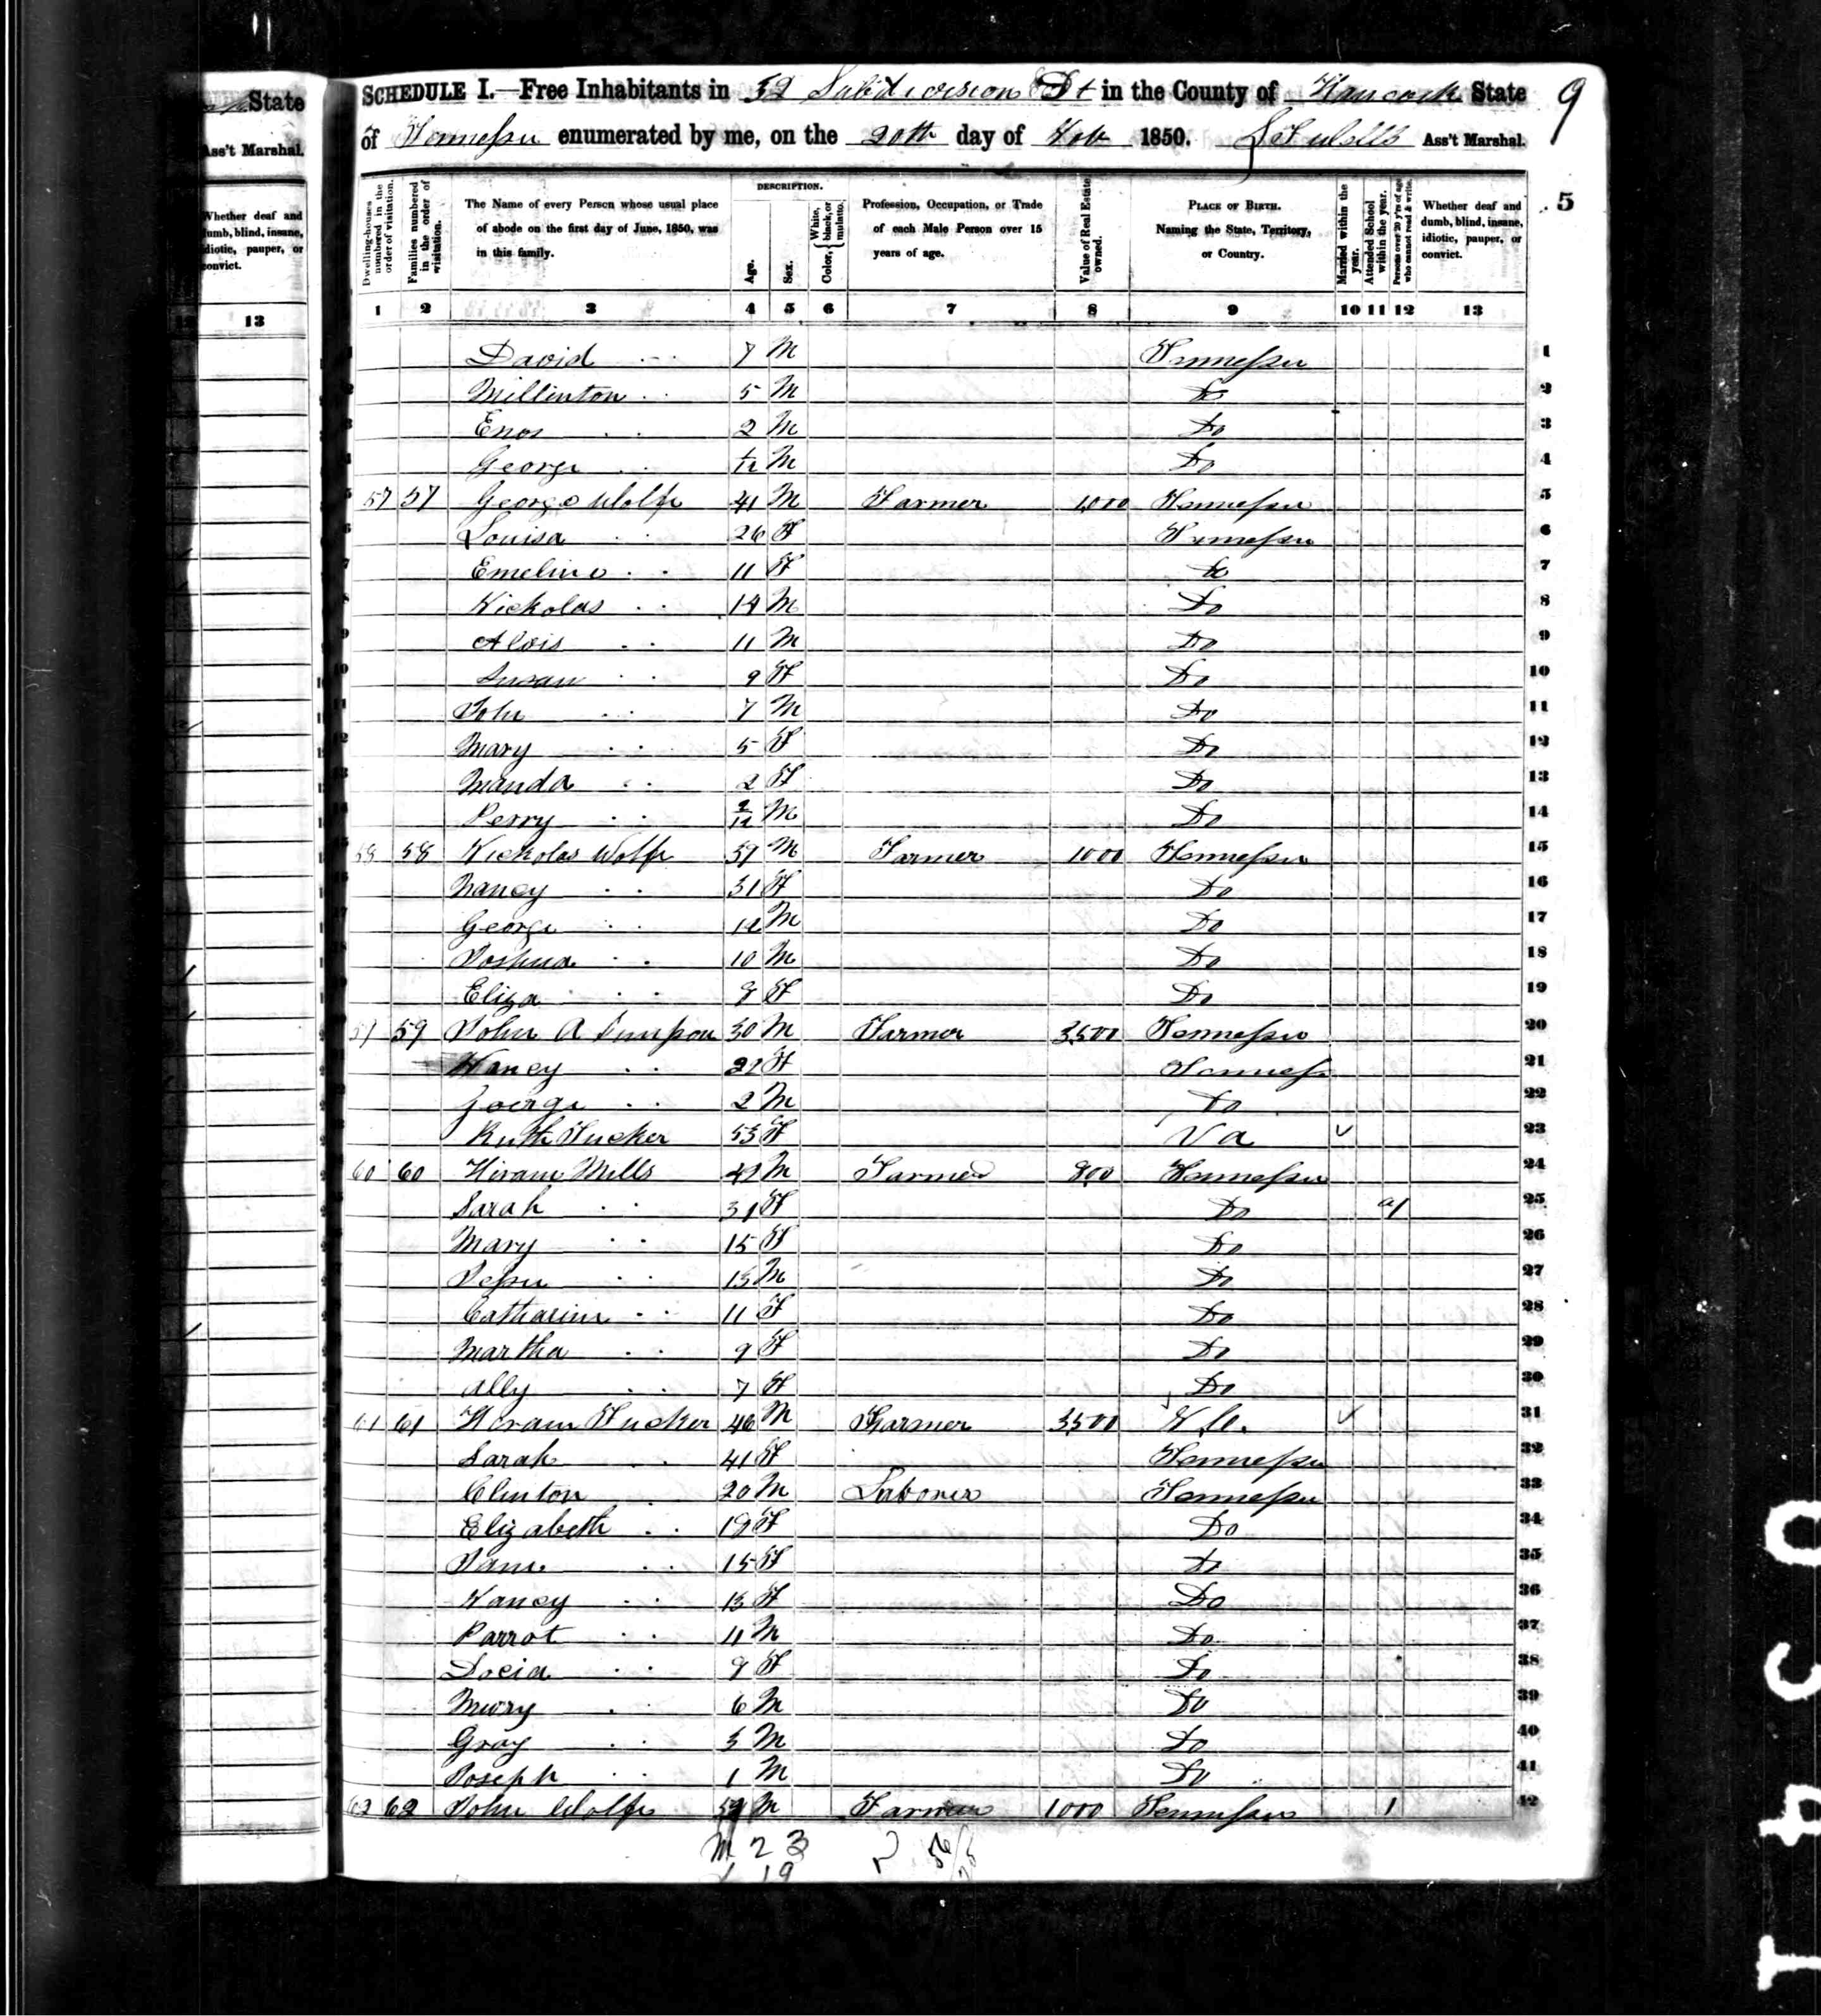 State
Ass't Marshal.
Whether deaf and dumb, blind, insane, idiotic, pauper, or convict.
13
SCHEDULE I.—Free Inhabitants in 32 Subdivision Dt in the County of Hancock State 9
of Tennessee enumerated by me, on the 20th day of Nov 1850. Ass't Marshal.
5
Dwelling-houses numbered in the order of visitation.
Families numbered in the order of visitation.
The Name of every Person whose usual place of abode on the first day of June, 1850, was in this family.
DESCRIPTION.
Age.
Sex.
Color, White, black, or mulatto.
Profession, Occupation, or Trade of each Male Person over 15 years of age.
Value of Real Estate owned.
PLACE OF BIRTH. Naming the State, Territory, or Country.
Married within the year.
Attended School within the year.
Persons over 20 y'rs of age who cannot read & write.
Whether deaf and dumb, blind, insane, idiotic, pauper, or convict.
1 2 3 4 5 6 7 8 9 10 11 12 13
David 7 M Tennessee 1
Millinton 5 M Do 2
Enos 2 M Do 3
George M Do 4
57 57 George Wolfe 41 M Farmer 1000 Tennessee 5
Louisa 26 F Tennessee 6
Emeline 11 F Do 7
Nickolas 14 M Do 8
Alvis 11 M Do 9
Susan 9 F Do 10
John 7 M Do 11
Mary 5 F Do 12
Manda 2 F Do 13
Perry M Do 14
58 58 Nickolas Wolfe M Farmer 1000 Tennessee 15
Nancy 31 F Do 16
George 12 M Do 17
Joshua 10 M Do 18
Eliza 8 F Do 19
59 59 John A Simpson 30 M Farmer 3500 Tennessee 20
Nancy 22 F Tenness 21
George 2 M Do 22
Ruth Tucker 53 F Va 23
60 60 Hiram Mills M Farmer 800 Tennessee 24
Sarah F Do 25
Mary 15 F Do 26
Jesse 13 M Do 27
Catharine 11 F Do 28
Martha 9 F Do 29
Ally 7 F Do 30
61 61 Hiram Tucker 46 M Farmer 3500 N C. 31
Sarah 41 F Tennessee 32
Clinton 20 M Laborer Tennessee 33
Elizabeth F Do 34
Jane 15 F Do 35
Nancy 13 F Do 36
Parrot 11 M Do 37
Docia F Do 38
6 M Do 39
Gray 3 M Do 40
Joseph 1 M Do 41
62 62 John Wolfe M Farmer 1000 Tennessee 1 42
M 23
19